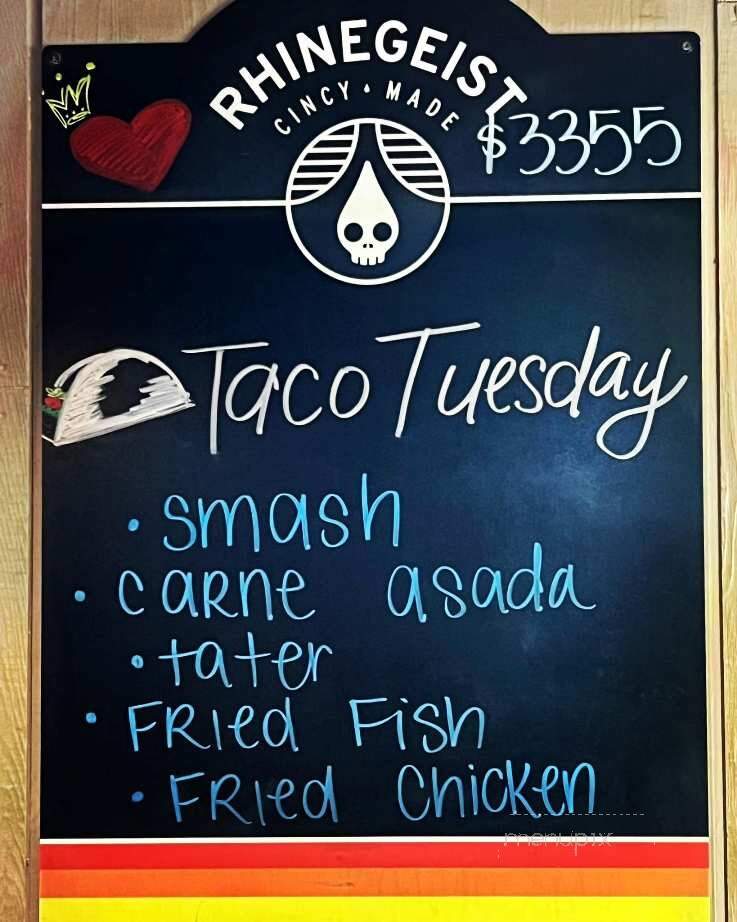 RHINEGEIST
CINCY • MADE
$3355
Taco Tuesday
• smash
• carne asada
• tater
• FRied Fish
• FRied Chicken
menupix